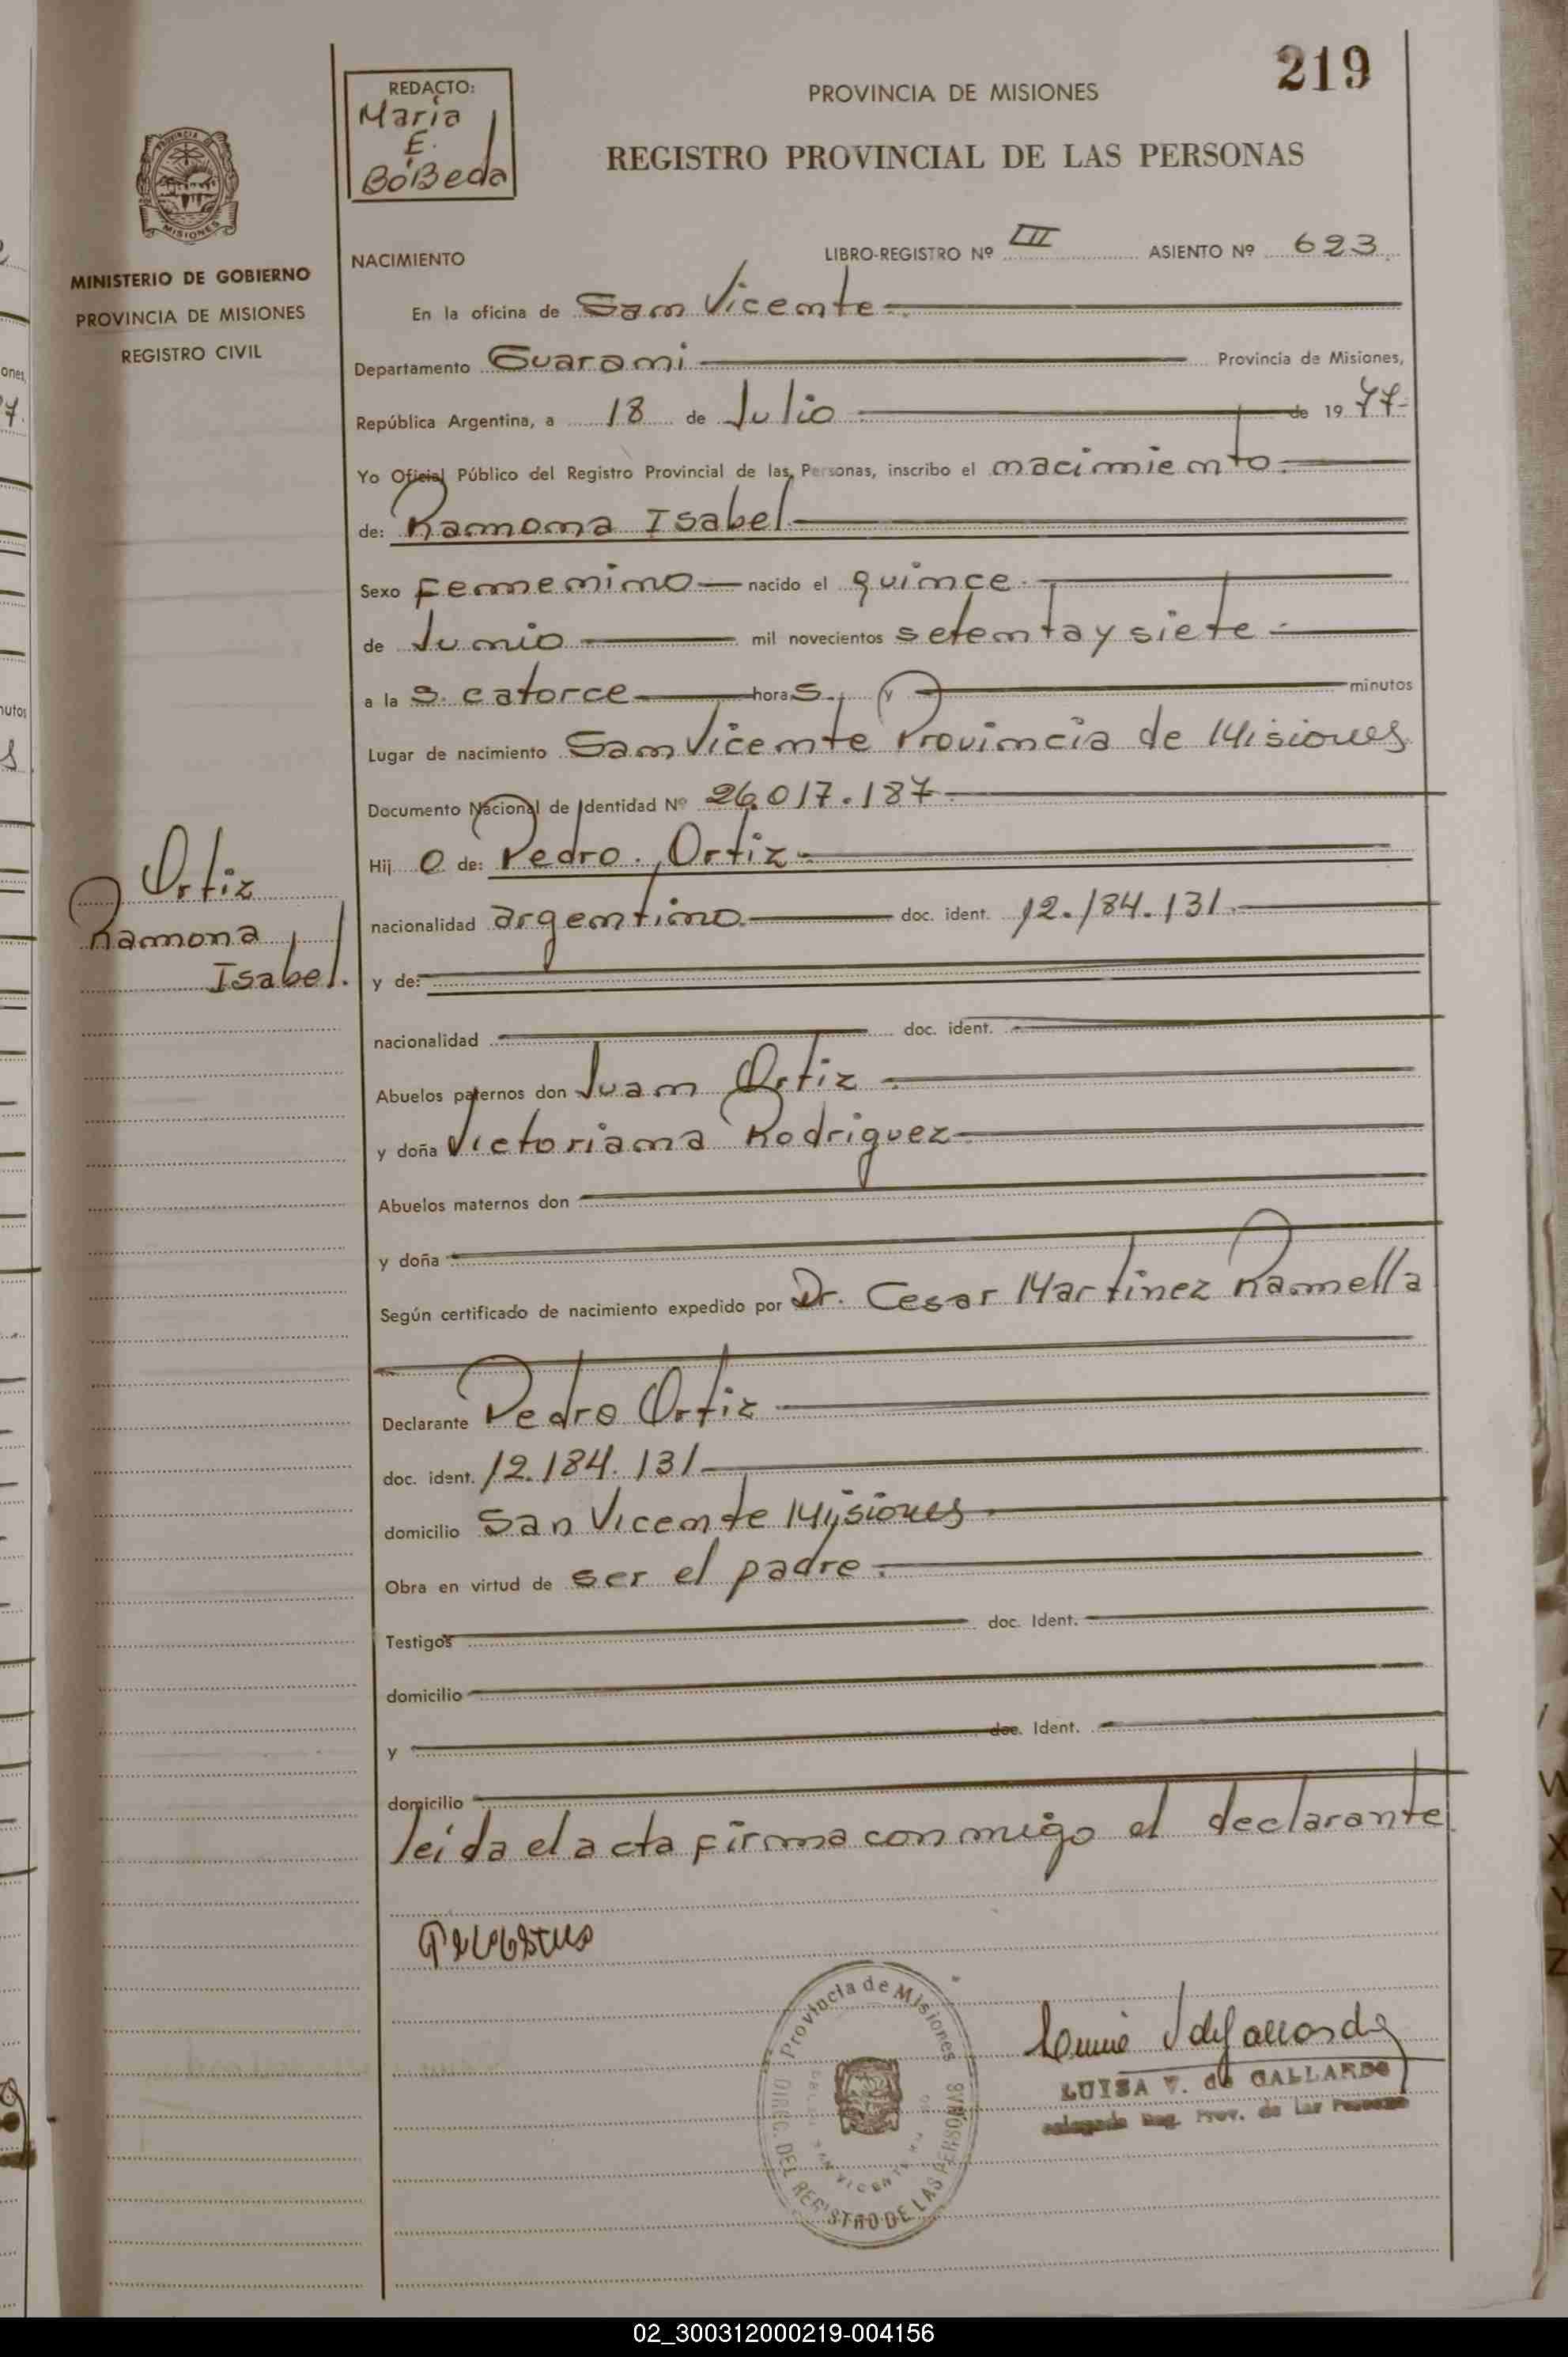 219
REDACTO:
Maria
E.
BóBeda
PROVINCIA DE MISIONES
REGISTRO PROVINCIAL DE LAS PERSONAS
MISIONES
MINISTERIO DE GOBIERNO
PROVINCIA DE MISIONES
REGISTRO CIVIL
NACIMIENTO LIBRO-REGISTRO Nº III ASIENTO Nº 623
En la oficina de San Vicente
Departamento Guarani Provincia de Misiones,
República Argentina, a 18 de Julio de 1977-
Yo Oficial Público del Registro Provincial de las Personas, inscribo el nacimiento.
de: Ramona Isabel
Sexo Femenino nacido el quince
de Junio mil novecientos setenta y siete
a la s. catorce hora s. y minutos
Lugar de nacimiento San Vicente Provincia de Misiones
Documento Nacional de Identidad Nº 26.017.187
Hij o de: Pedro. Ortiz
nacionalidad argentino doc. ident. 12.184.131
y de:
nacionalidad doc. ident.
Abuelos paternos don Juan Ortiz
y doña Victoriana Rodriguez
Abuelos maternos don
y doña
Según certificado de nacimiento expedido por Dr. Cesar Martinez Ramella
Declarante Pedro Ortiz
doc. ident. 12.184.131
domicilio San Vicente Misiones
Obra en virtud de ser el padre
Testigos doc. Ident.
domicilio
y doc. Ident.
domicilio
leida el acta firma con migo el declarante
Ortiz
Ramona
Isabel.
Provincia de Misiones
DIREC. DEL REGISTRO DE LAS PERSONAS
SAN VICENTE
LUISA V. de GALLARDO
Delegada Reg. Prov. de las Personas
02_300312000219-004156